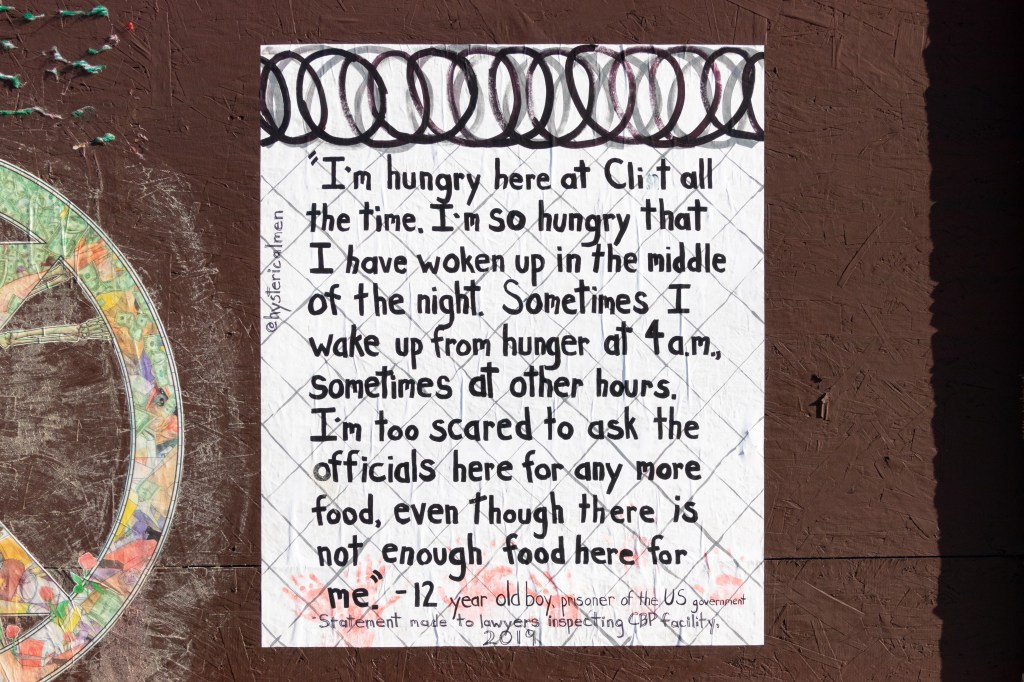 "I'm hungry here at Clint all
the time. I'm so hungry that
I have woken up in the middle
of the night. Sometimes I
wake up from hunger at 4 a.m.,
sometimes at other hours.
I'm too scared to ask the
officials here for any more
food, even though there is
not enough food here for
me." - 12 year old boy, prisoner of the US government
Statement made to lawyers inspecting CBP facility,
2019
@hystericalmen